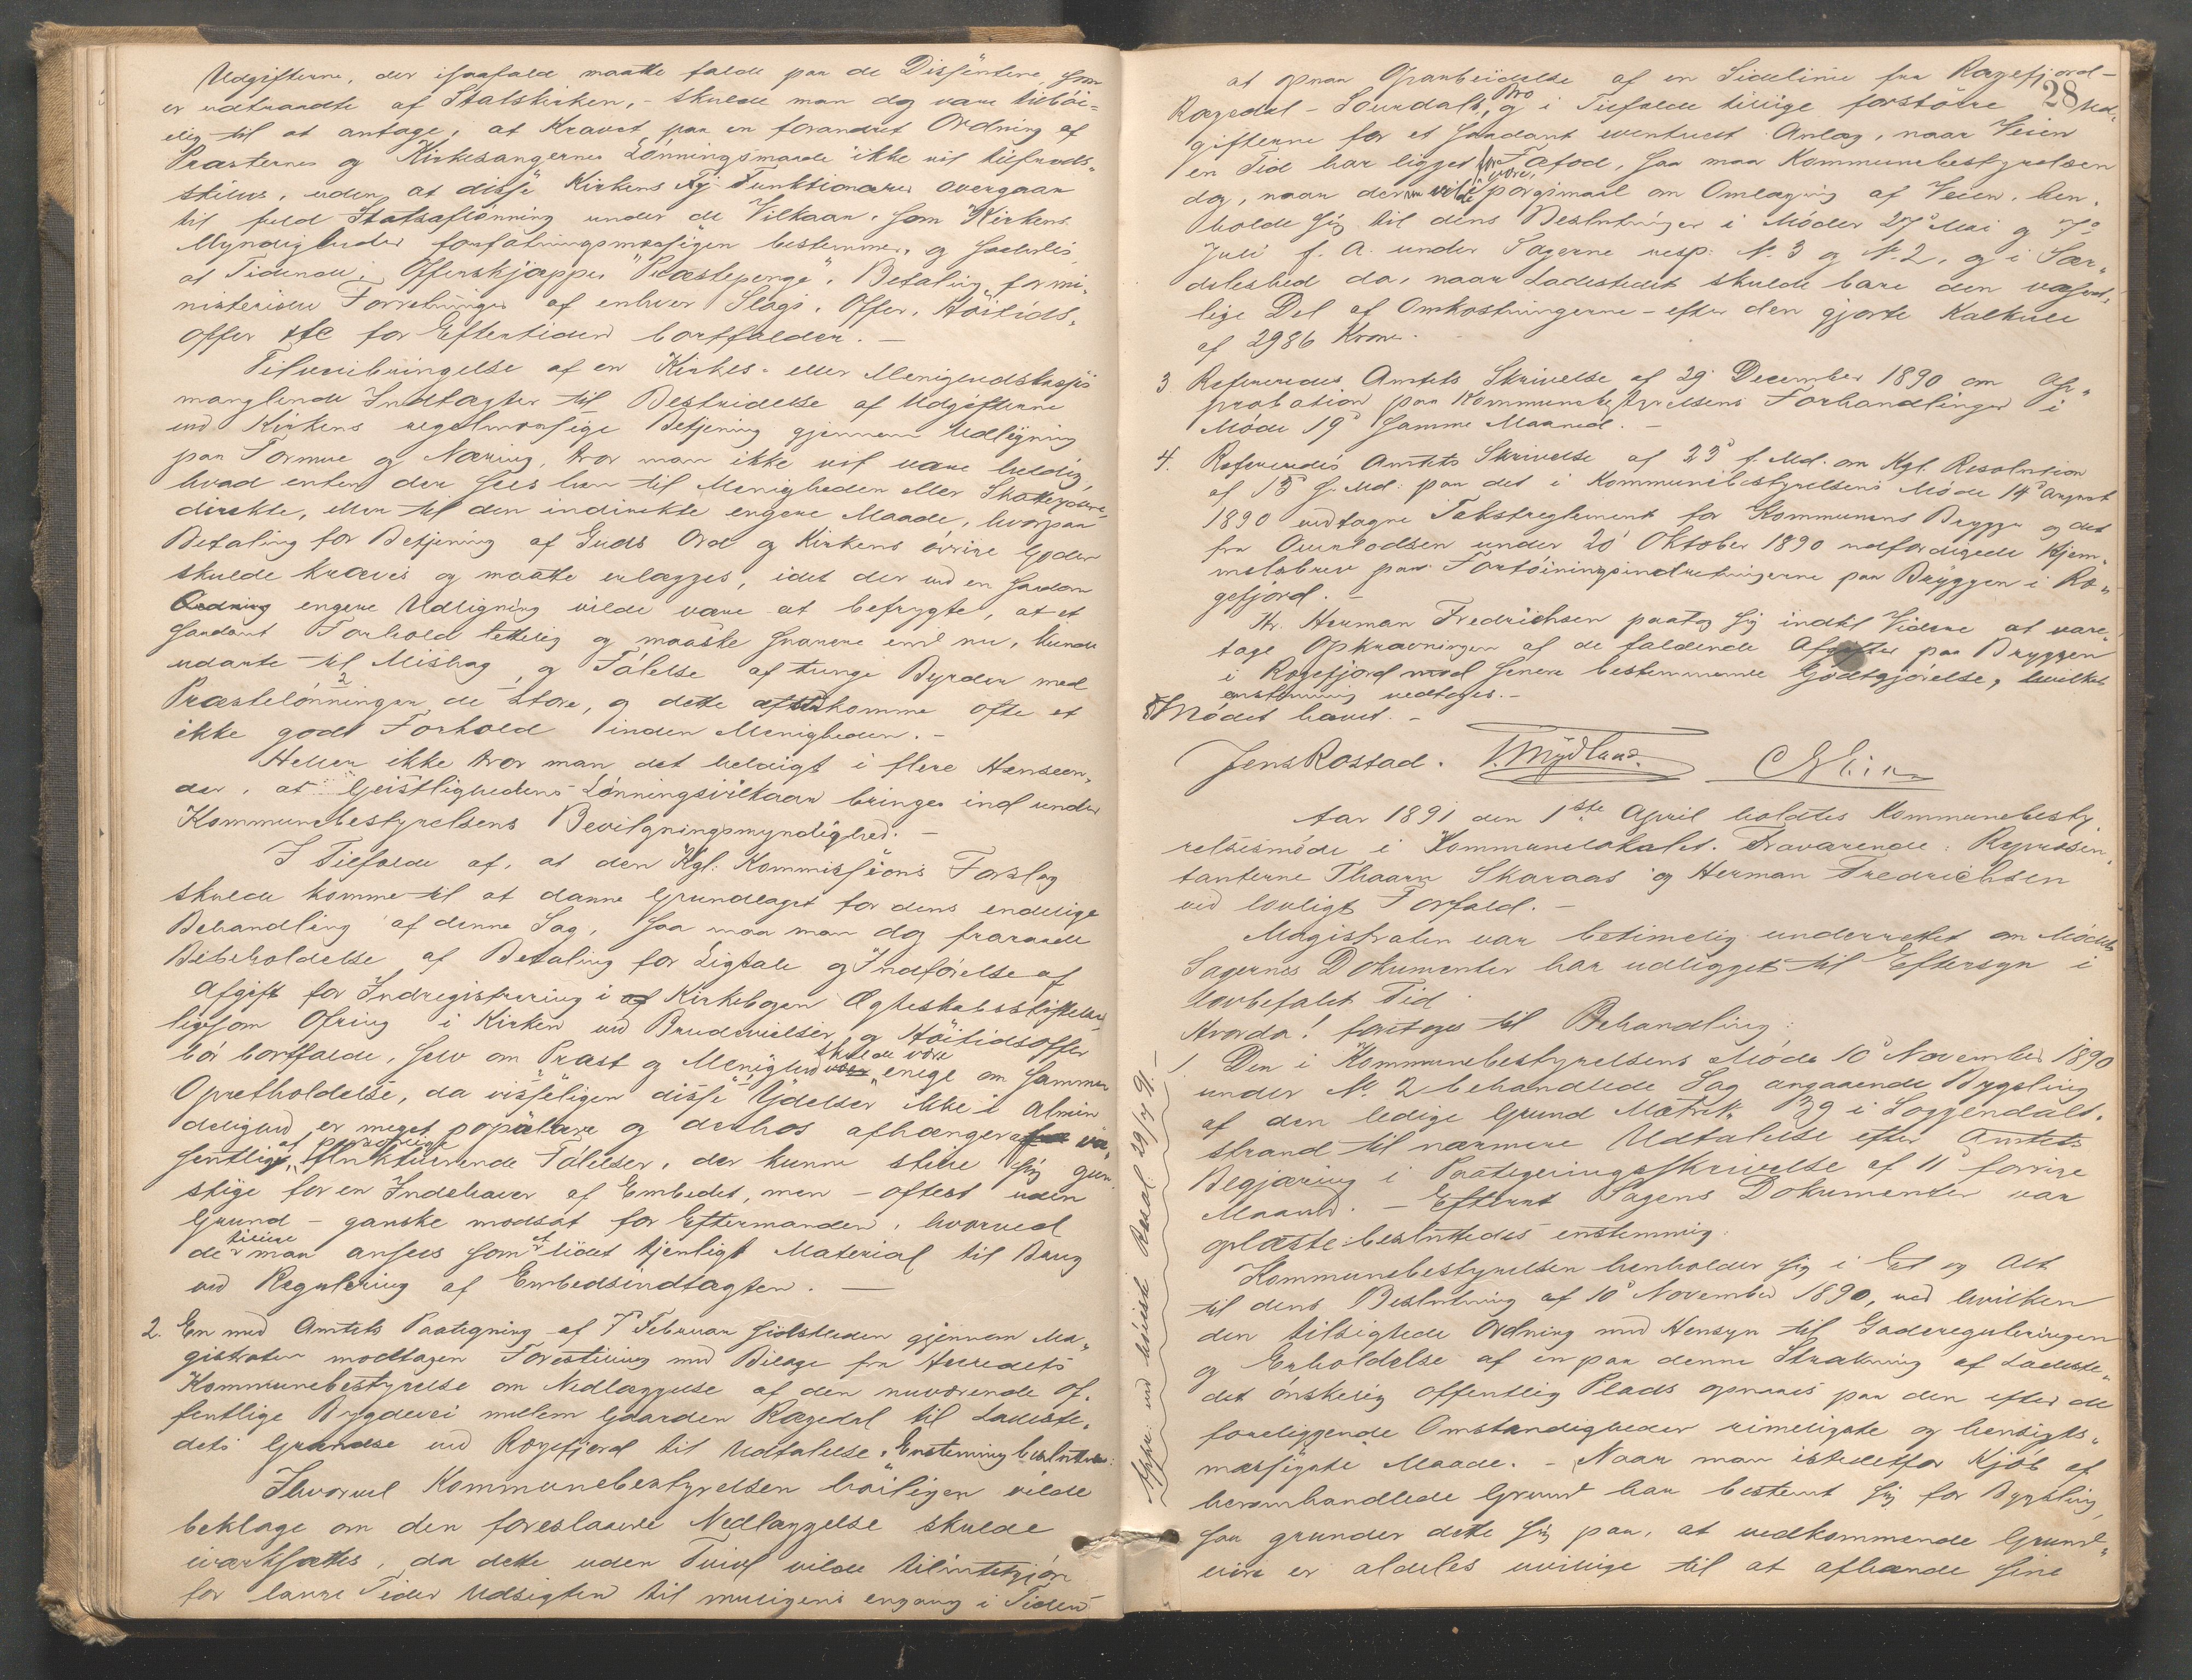 Udgifterne, der isaafald maatte falde paa de Dissentere, som
er udtraadte af Statskirken, - skulde man dog være tilböi-
elig til at antage, at Kravet paa en forandret Ordning af
Præsternes og Kirkesangernes Lönningsmaade ikke vil tilfreds-
stilles, uden at disse Kirkens Funktionærer overgaar
til fuld Statsaflönning under de Vilkaar, som Kirkens
Myndigheder forfatningsmæssigen bestemmer, og saaledes
at Tiende, Offerskjæpper "Præstepenge", Betaling for mi-
nisterielle Forretninger af enhver Slags, Offer, Höitids-
offer etc for Eftertiden bortfalder. -
Tilveiebringelse af en Kirkes- eller Menighedskasses
manglende Indtægter til Bestridelse af Udgifterne
ved Kirkens regelmæssige Betjening gjennem Udligning
paa Formue og Næring, tror man ikke vil være heldig,
hvad enten der sees hen til Menigheden eller Skatteyderne
direkte, eller til den indirekte engere Maade, hvorpaa
Betaling for Betjening af Guds Ord og Kirkens övrige Goder
skulde kræves og maatte erlægges, idet der ved en saadan
Ordning engere Udligning vilde være at befrygte, at et
saadant Forhold lettelig og maaske snarere end nu, kunde
udarte til Mishag og Fölelse af tunge Byrder med
Præstelönninger, de store, og dette afstedkomme ofte et
ikke godt Forhold inden Menigheden. -
Heller ikke tror man det heldigt i flere Henseen-
der, at Geistlighedens Lönningsvilkaar bringes ind under
Kommunebestyrelsens Bevilgningsmyndighed. -
I Tilfælde af, at den Kgl. Kommissions Forslag
skulde komme til at danne Grundlaget for dens endelige
Behandling af denne Sag, saa maa man dog fraraade
Bibeholdelse af Betaling for Ligtale og Indförelse af
Afgift for Indregistrering i af Kirkebogen Ægteskabsstiftelser
ligesom Ofring i Kirken ved Brudevielser og Höitidsoffer
bör bortfalde, selv om Præst og Menighed skulde være enige om sammes
Opretholdelse, da visseligen disse Ydelser ikke i Almin
delighed er meget populære og derhos afhænger væ-
sentligt af personlige fluktuerende Fölelser, der kunne stille sig gun-
stige for en Indehaver af Embedet, men - oftest uden
Grund - ganske modsat for Eftermanden, hvorved
de tillige maa ansees som et lidet tjenligt Material til Brug
ved Regulering af Embedsindtægten. -
2. En med Amtets Paategning af 7de Februar sidstleden gjennem Ma-
gistraten modtagen Forestilling med Bilage fra Herredets
Kommunebestyrelse om Nedlæggelse af den nuværende of-
fentlige Bygdevei mellem Gaarden Rægedal til Ladeste-
dets Grændse ved Rægefjord til Udtalelse. Enstemmig besluttedes:
Ihvorvel Kommunebestyrelsen höiligen vilde
beklage om den foreslaaede Nedlæggelse skulde
iværksættes, da dette uden Tvivl vilde tilintetgjöre
for lange Tider Udsigten til muligens engang i Tiden
28
at opnaa Oparbeidelse af en Sidelinie fra Rægefjord-
Rægedal - Sourdals Bro og i Tilfælde tillige forstörre Ud-
gifterne for et saadant eventuelt Anlæg, naar Veien
en Tid har ligget for Fæfod, saa maa Kommunebestyrelsen
dog, naar der vil være Spörgsmaal om Omlægning af Veien, hen-
holde sig til dens Beslutninger i Möder 27de Mai og 7de
Juli f. A. under Sagerne resp. N. 3 og N. 2, og i Sær-
deleshed da, naar Ladestedet skulde bære den væsent-
lige Del af Omkostningerne - efter den gjorte Kalkule
af 2986 Kroner.
3 Refereredes Amtets Skrivelse af 29 December 1890 om Ap-
probation paa Kommunebestyrelsens Forhandlinger i
Möde 19de samme Maaned. -
4. Refereredes Amtets Skrivelse af 23de f. Md. om Kgl. Resolution
af 13de s. Md: paa det i Kommunebestyrelsens Möde 14de August
1890 vedtagne Takstreglement for Kommunens Brygge og det
fra Overlodsen under 20de Oktober 1890 udfærdigede Hjem-
melsbrev paa Fortöiningsindretningerne paa Bryggen i Ræ-
gefjord. -
Hr. Herman Fredrichsen paatog sig indtil Videre at vare-
tage Opkrævningen af de faldende Afgifter paa Bryggen
i Rægefjord mod senere bestemmende Godtgjörelse, hvilket
enstemmig vedtages. -
Mödet hævet. -
Jens Rostad. T. Mydland.
Aar 1891 den 1ste April holdtes Kommunebesty-
relsesmöde i Kommunelokalet. Fraværende: Repræsen-
tanterne Thaarn Skaraas og Herman Fredrichsen
ved lovligt Forfald. -
Magistraten var betimelig underrettet om Mödet.
Sagernes Dokumenter har udligget til Eftersyn i
lovbefalet Tid.
Hvorda! foretoges til Behandling:
1. Den i Kommunebestyrelsens Möde 10de November 1890
under N. 2 behandlede Sag angaaende Bygsling
af den ledige Grund Matrik. 39 i Soggendals-
strand til nærmere Udtalelse efter Amtets
Begjæring i Paategningsskrivelse af 11te forrige
Maaned. - Efterat Sagens Dokumenter var
oplæste besluttedes enstemmig:
Kommunebestyrelsen henholder sig i Et og Alt
til dens Beslutning af 10de November 1890, ved hvilken
den tilsigtede Ordning med Hensyn til Gadereguleringen
og Erholdelse af en paa denne Strækning af Ladeste-
det önskelig offentlig Plads opnaaes paa den efter de
foreliggende Omstændigheder rimeligste og hensigts-
mæssigste Maade. - Naar man istedetfor Kjöb af
heromhandlede Grund har bestemt sig for Bygsling,
saa grunder dette sig paa, at vedkommende Grund-
eiere er aldeles uvillige til at afhænde sine
Appr. ved Resol 29/7 91. -